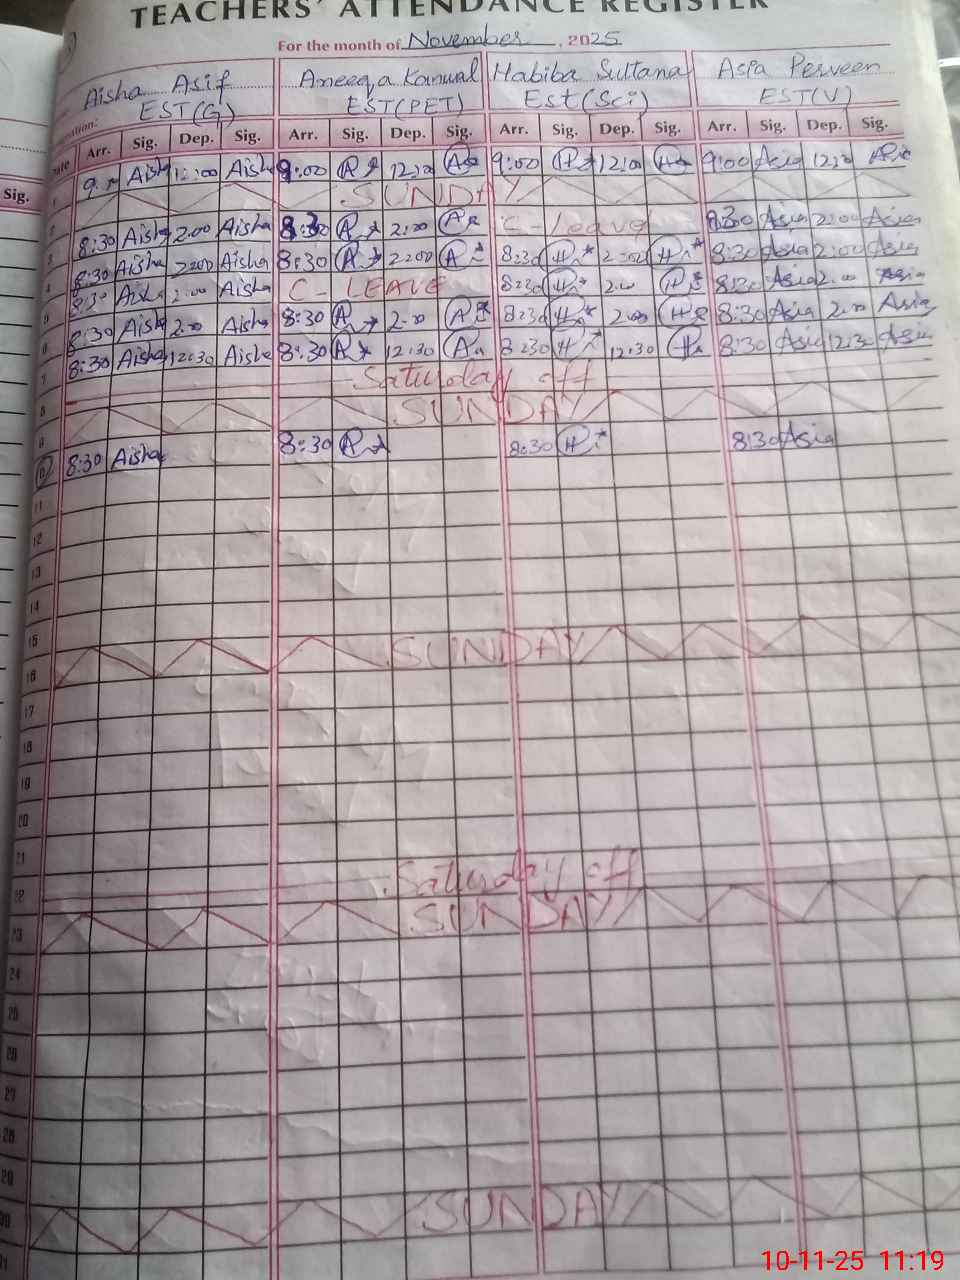 TEACHERS' ATTENDANCE REGISTER
For the month of November, 2025
Aisha Asif Aneeqa Kanwal Habiba Sultana Asia Perveen
EST(G) EST(PET) Est(Sci) EST(V)
Sig.
Date Arr. Sig. Dep. Sig. Arr. Sig. Dep. Sig. Arr. Sig. Dep. Sig. Arr. Sig. Dep. Sig.
1 Aisha 12:00 Aisha 9:00 A 12:00 A 9:00 H 12:00 H 9:00 Asia 12:00 Asia
2 SUNDAY
3 8:30 Aisha 2:00 Aisha 8:30 A 2:00 A C-Leave 8:30 Asia 2:00 Asia
4 8:30 Aisha 2:00 Aisha 8:30 A 2:00 A 8:30 H 2:00 H 8:30 Asia 2:00 Asia
5 8:30 Aisha 2:00 Aisha C-LEAVE 8:30 H 2:00 H 8:30 Asia 2:00 Asia
6 8:30 Aisha 2:00 Aisha 8:30 A 2:00 A 8:30 H 2:00 H 8:30 Asia 2:00 Asia
7 8:30 Aisha 12:30 Aisha 8:30 A 12:30 A 8:30 H 12:30 H 8:30 Asia 12:30 Asia
8 Saturday off
9 SUNDAY
10 8:30 Aisha 8:30 A 8:30 H 8:30 Asia
11
12
13
14
15
16 SUNDAY
17
18
19
20
21
22 Saturday off
23 SUNDAY
24
25
26
27
28
29
30 SUNDAY
31
10-11-25 11:19